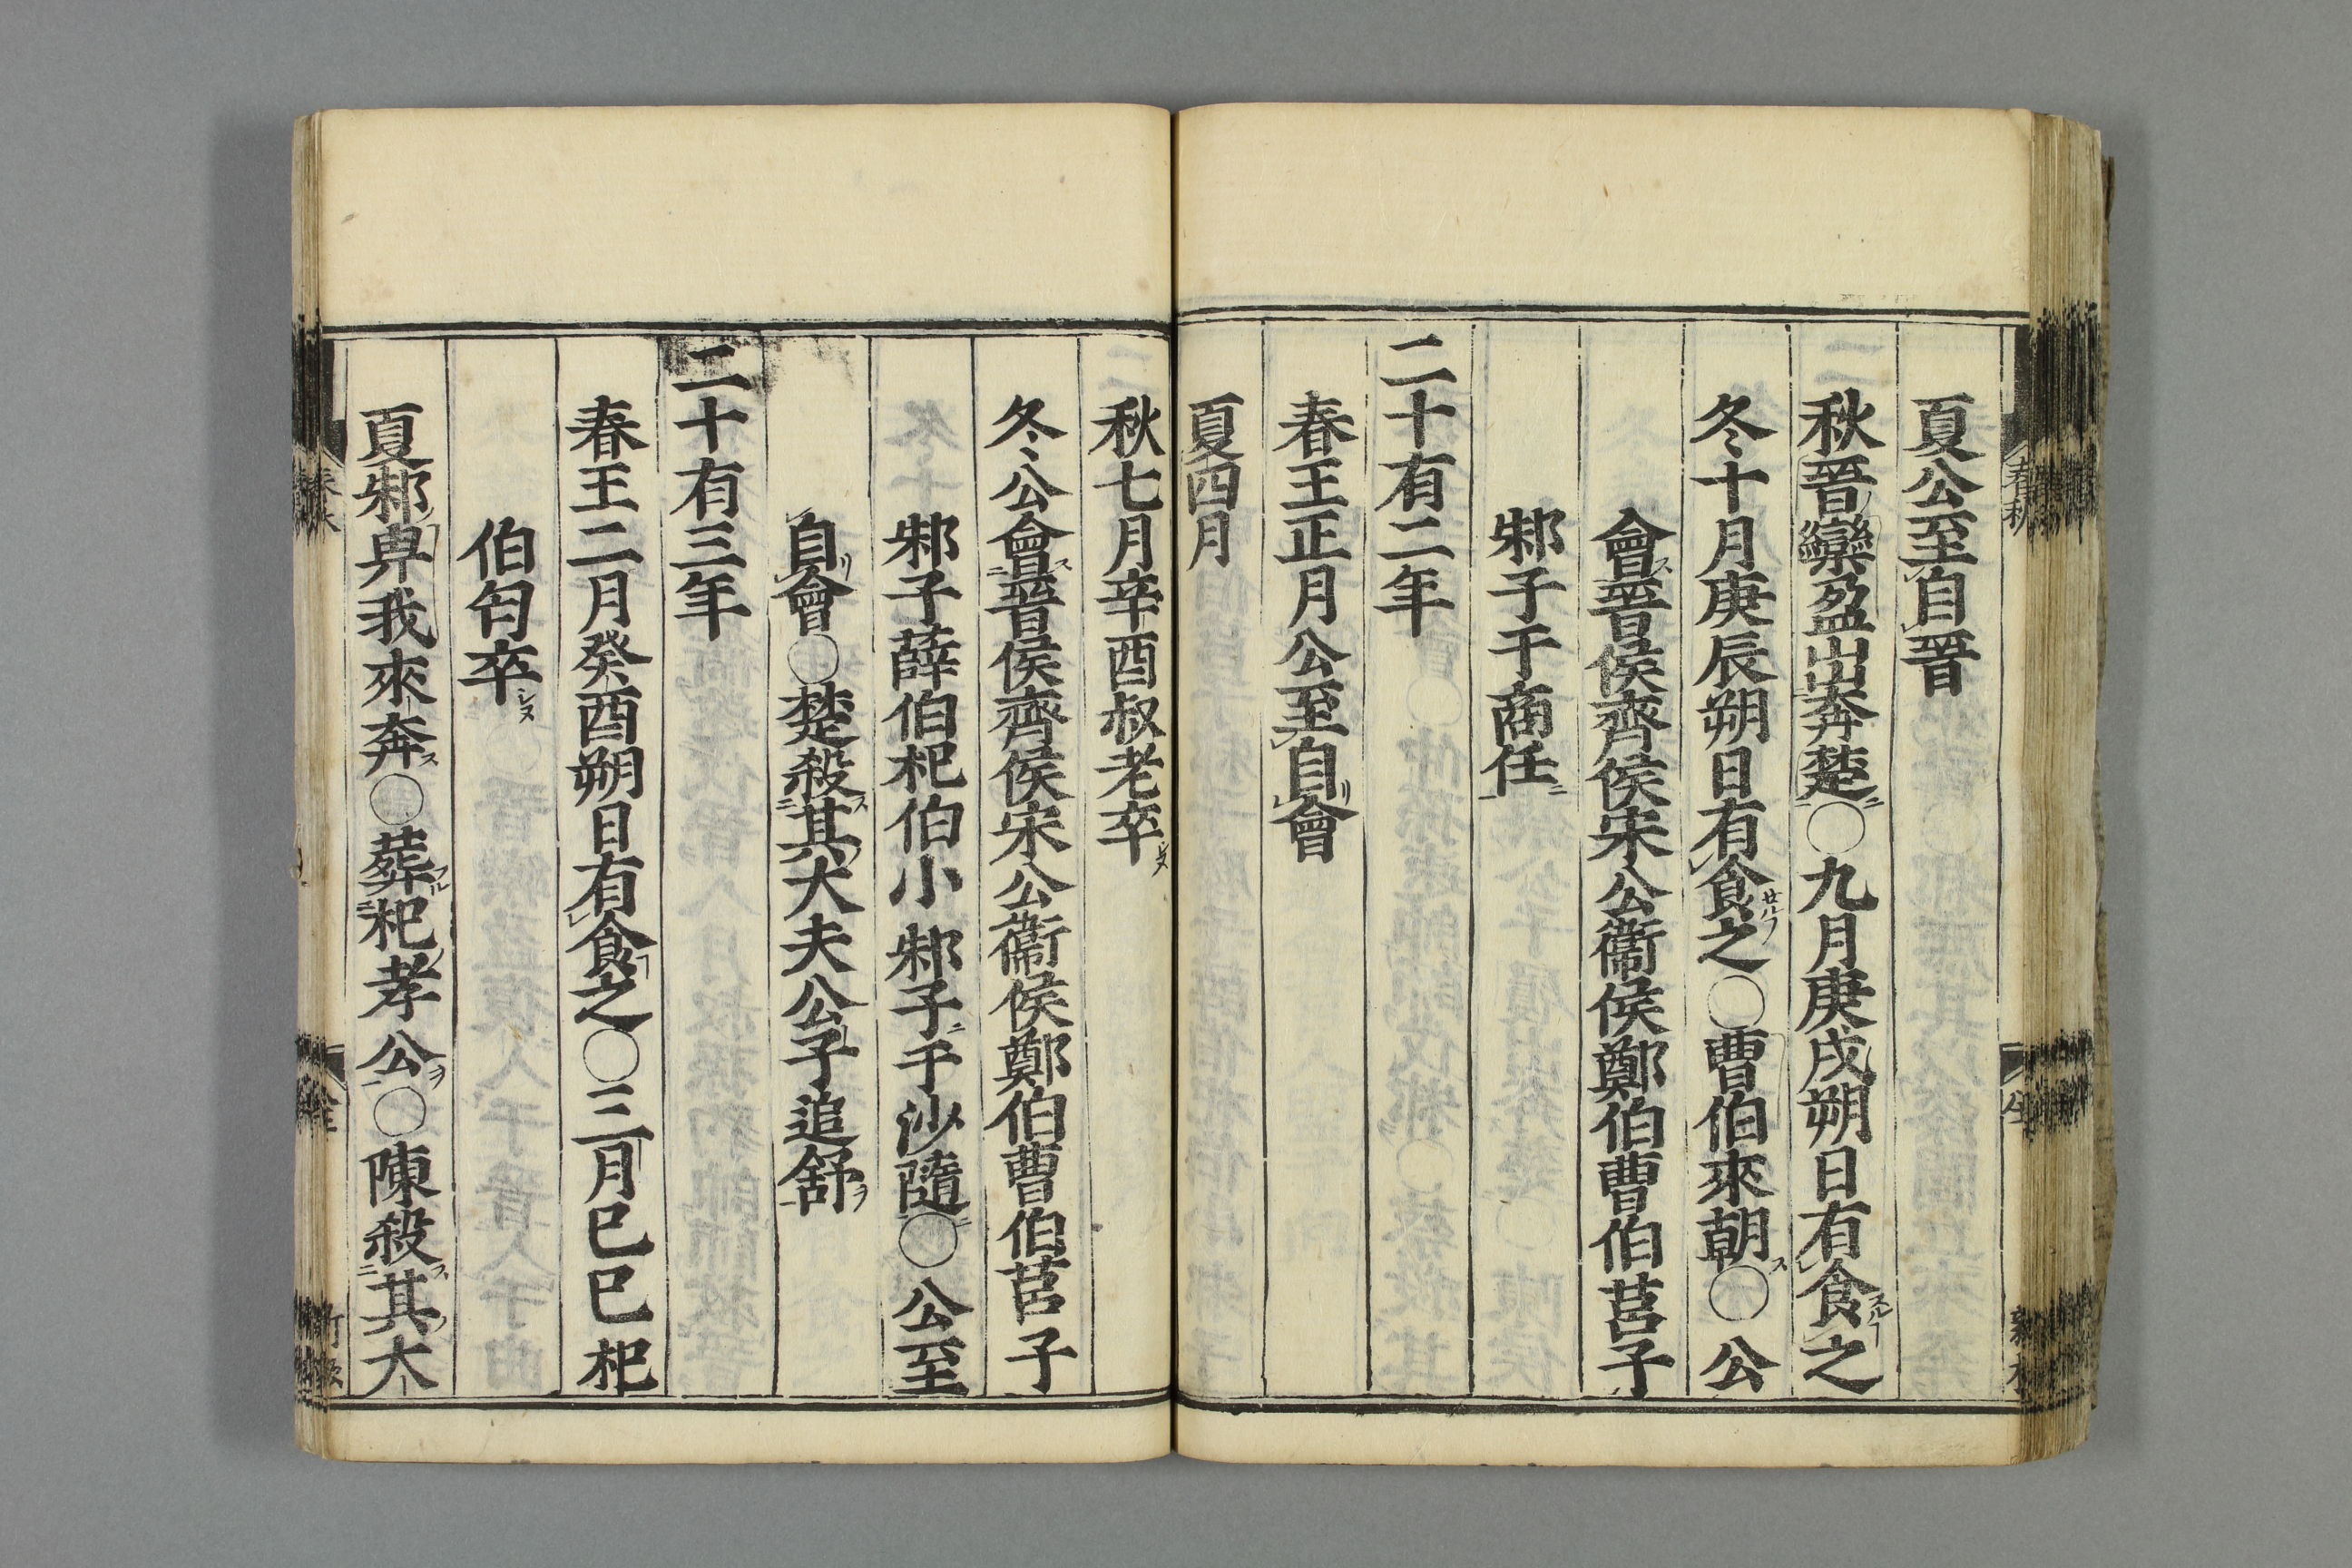 夏公至自晉
秋晉欒盈出奔楚○九月庚戌朔日有食之
冬十月庚辰朔日有食之○曹伯來朝○公
會晉侯齊侯宋公衞侯鄭伯曹伯莒子
邾子于商任
二十有二年
春王正月公至自會
夏四月
秋七月辛酉叔老卒
冬公會晉侯齊侯宋公衞侯鄭伯曹伯莒子
邾子薛伯杞伯小邾子于沙隨○公至
自會○楚殺其大夫公子追舒
二十有三年
春王二月癸酉朔日有食之○三月己巳杞
伯匄卒
夏邾畀我來奔○葬杞孝公○陳殺其大